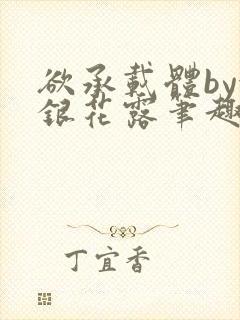 欲承載體by
銀花露筆趣
丁宜香